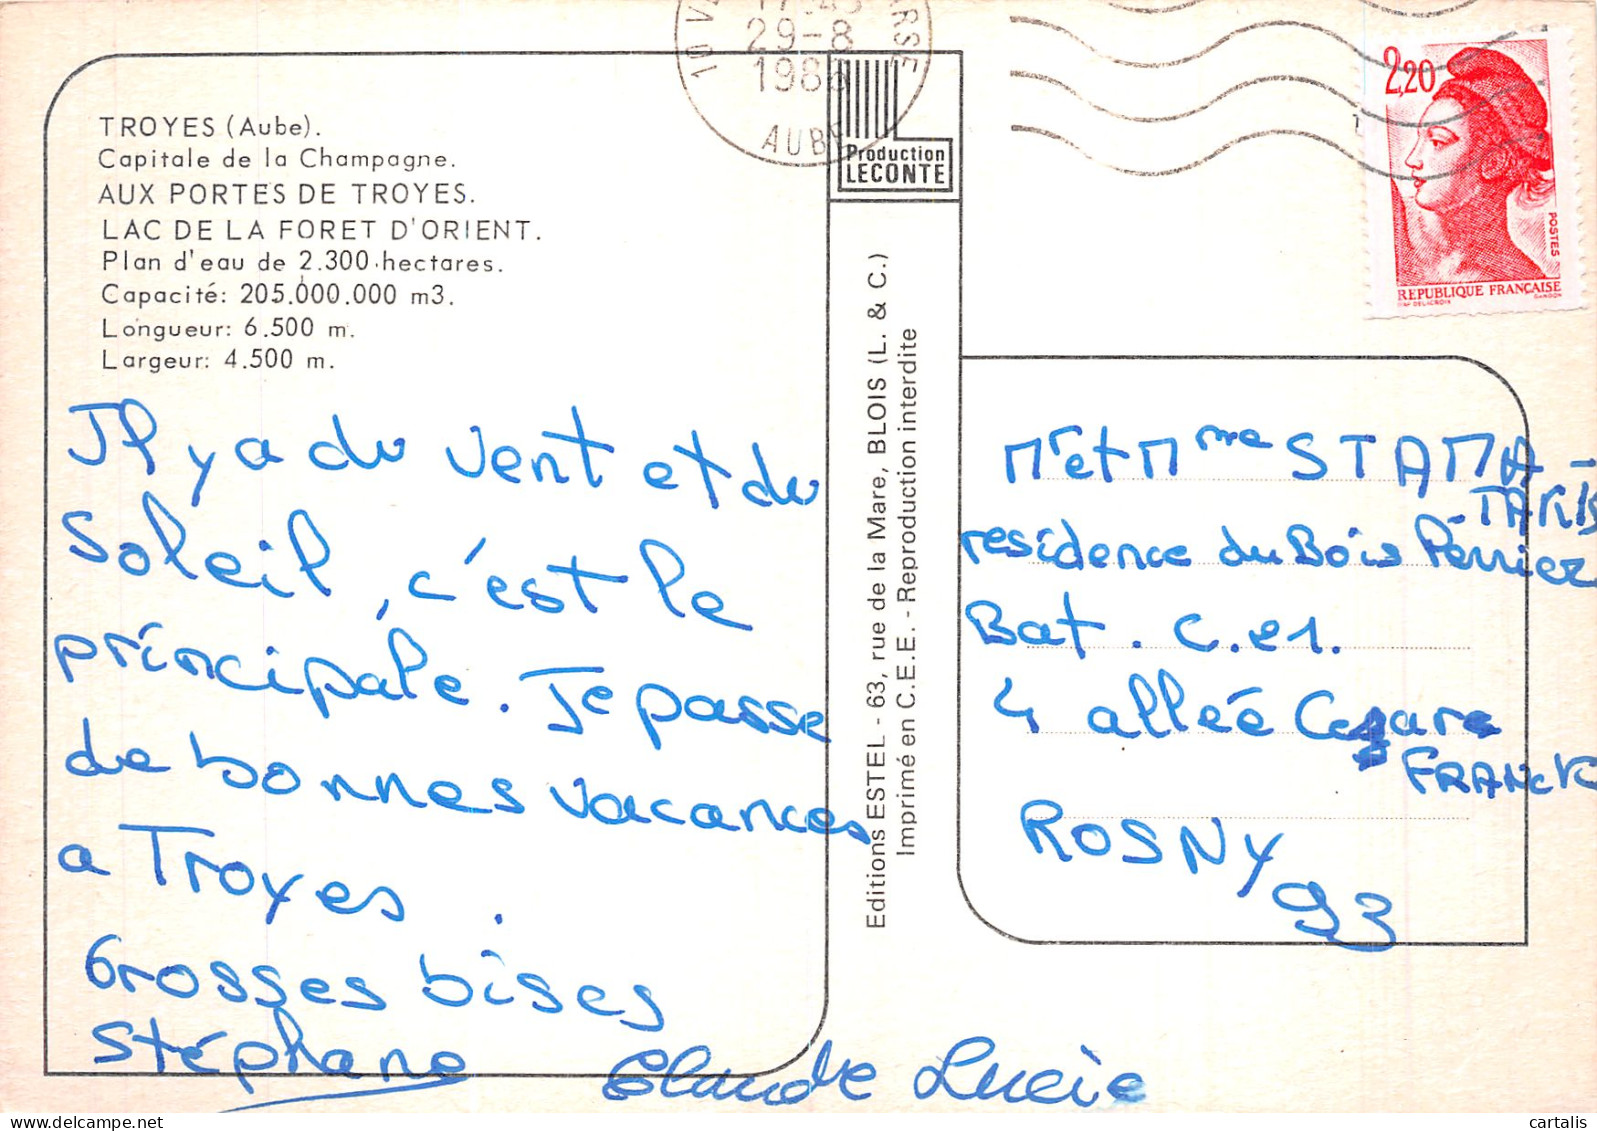 TROYES (Aube).
Capitale de la Champagne.
AUX PORTES DE TROYES.
LAC DE LA FORET D'ORIENT.
Plan d'eau de 2.300 hectares.
Capacité: 205.000.000 m3.
Longueur: 6.500 m.
Largeur: 4.500 m.
Il y a du vent et du
Soleil, c'est le
principale. Je passe
de bonnes vacances
a Troyes.
Grosses bises
Stéphane
Claude Lucie
Production
LECONTE
Editions ESTEL - 63, rue de la Mare, BLOIS (L. & C.)
Imprimé en C.E.E. - Reproduction interdite
29-8
AUBE
2,20
POSTES
REPUBLIQUE FRANÇAISE
Mr et Mme STAMA-
TAKIS
residence du Bois Perrier
Bat. C.e1.
4 allée Cesare
FRANCK
ROSNY
93
cartalis
delcampe.net